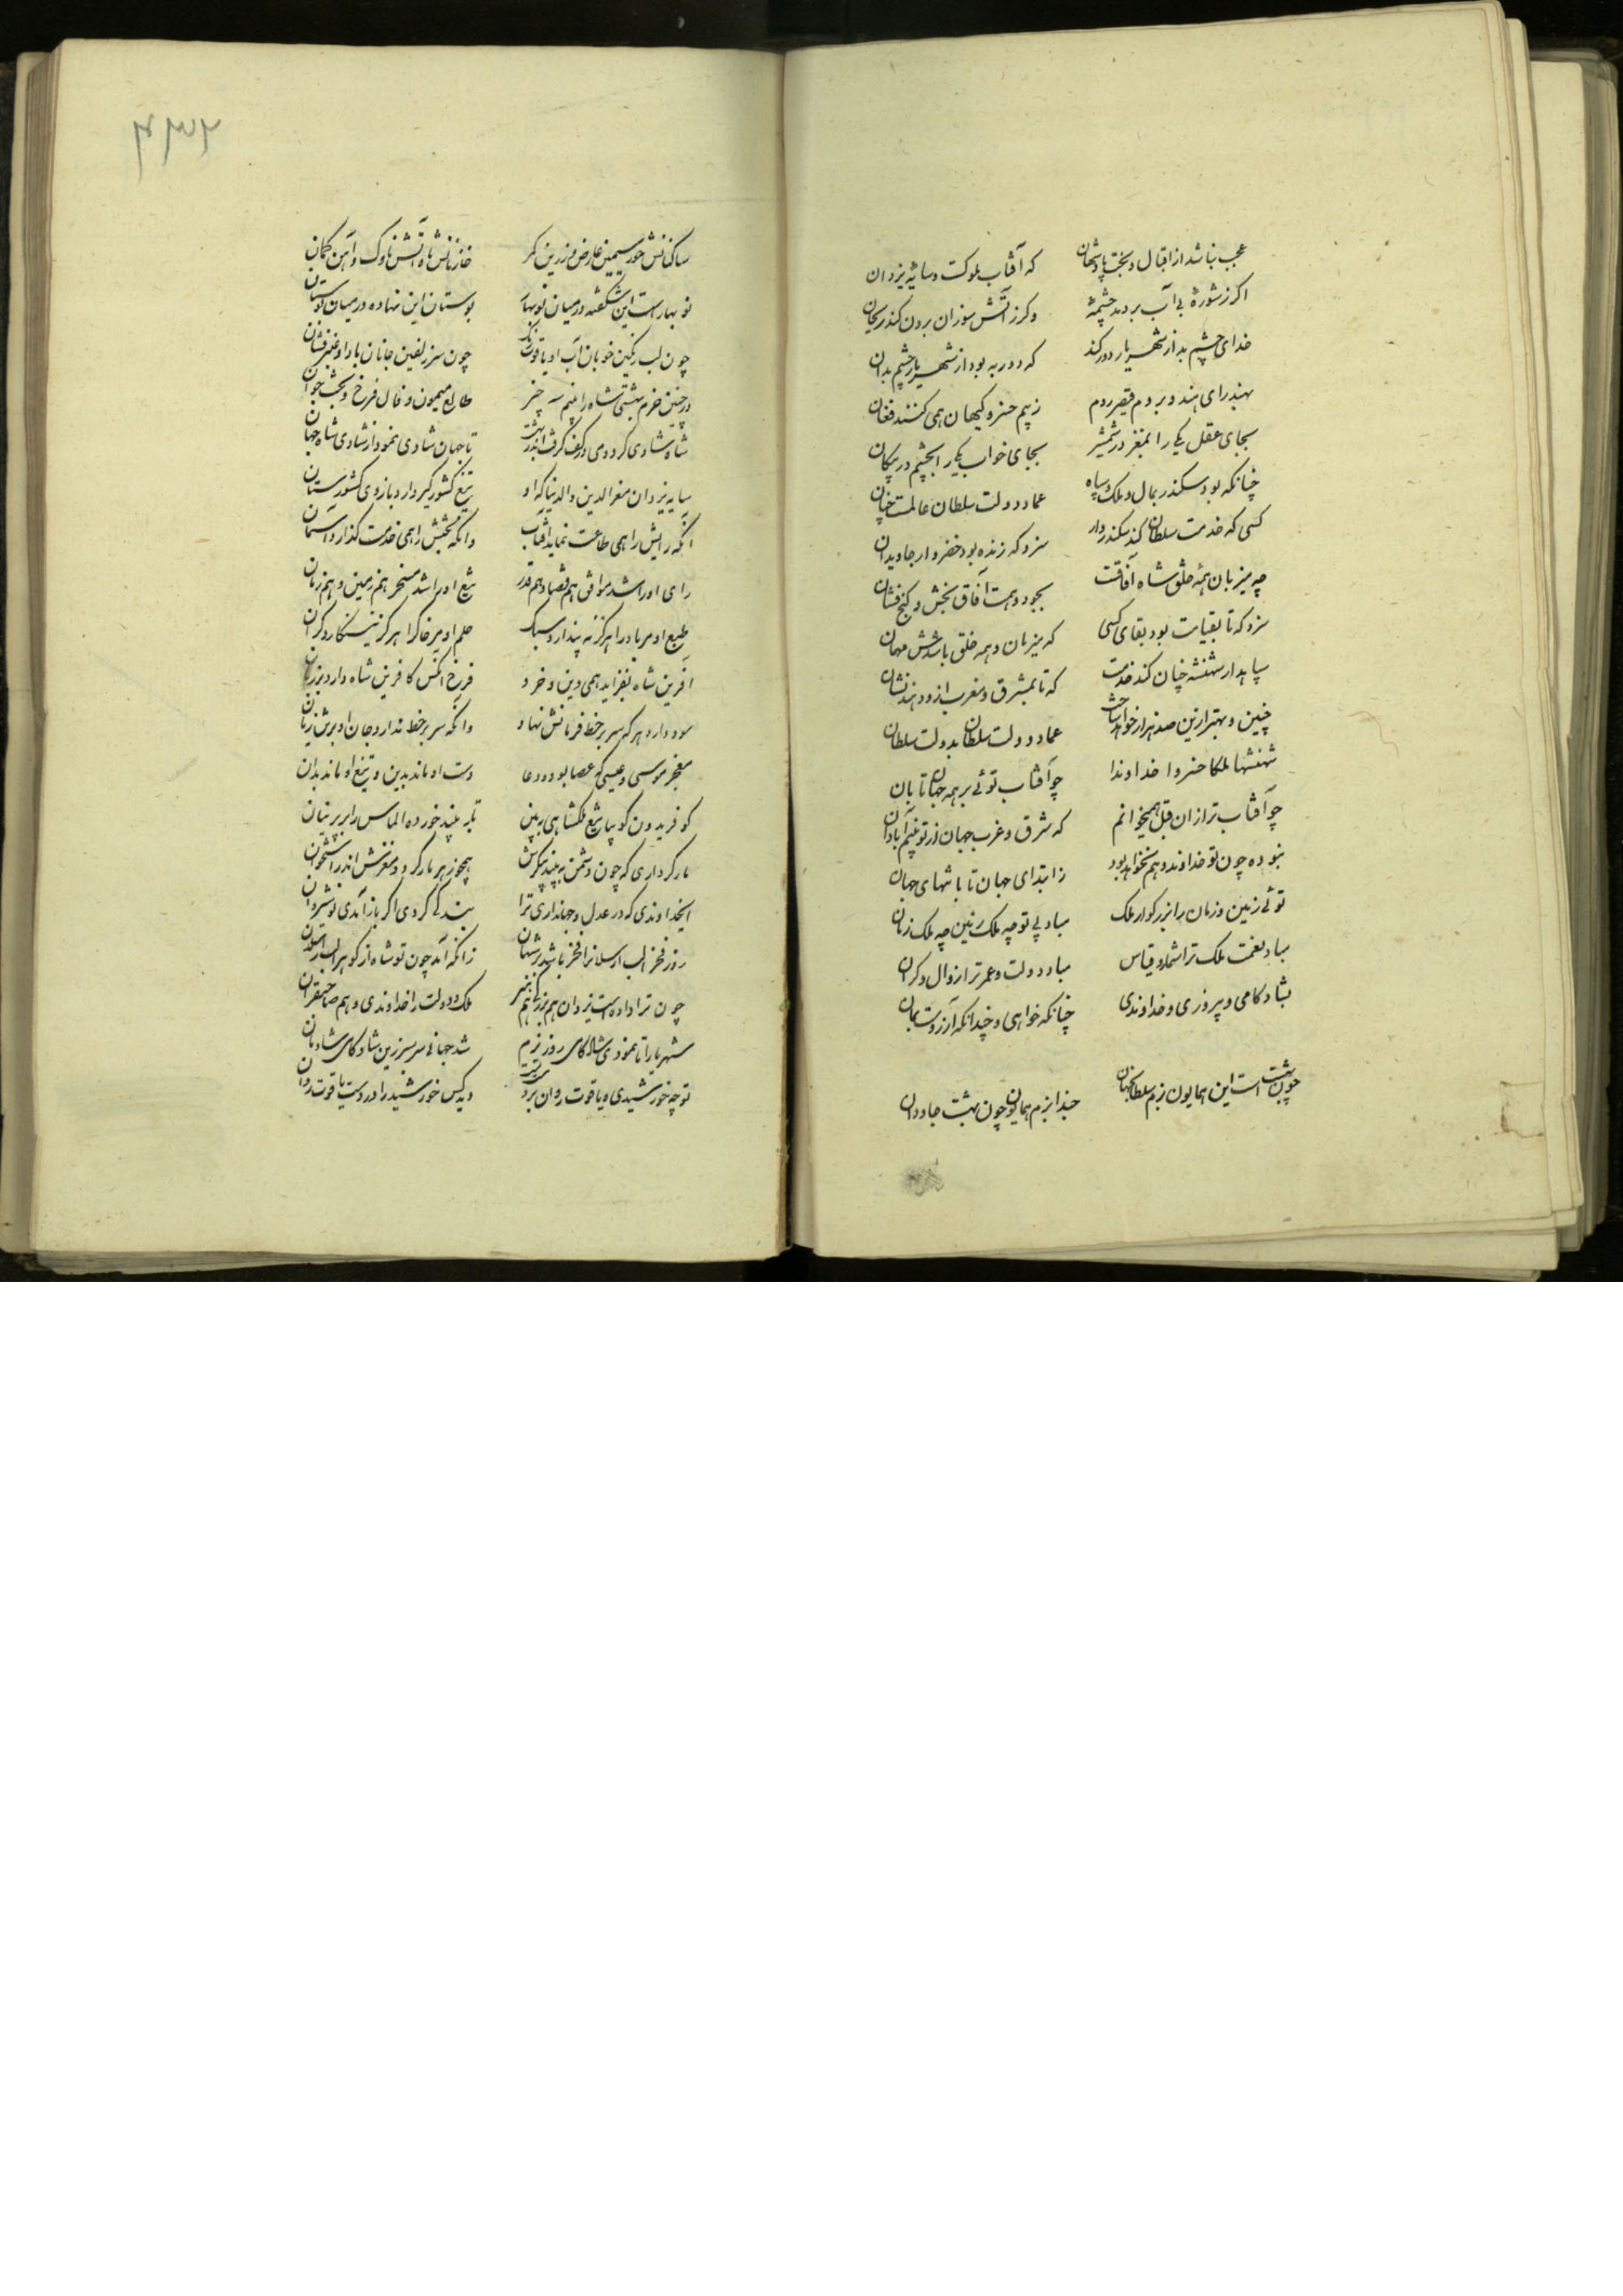 عجب نباشد از اقبال و بخت پادشهان که آفتاب ملوکست و سایهٔ یزدان
اگر ز شورهٔ بی آب بردمد چشمه وگر ز آتش سوزان برون کند ریحان
خدای چشم بد از شهریار دور کند که دور به بود از شهریار چشم بدان
بهند رای هند و بروم قیصر روم ز بیم خسرو کیهان همی کنند فغان
بجای عقل یکی را بمغز در شمشیر بجای خواب یکی را بچشم در پیکان
چنانکه بود سکندر بمال و ملک و سپاه عماد دولت سلطان عالمست چنان
کسی که خدمت سلطان کند سکندروار سزد که زنده بود خضروار جاویدان
چه میزبان همه خلق شاه آفاقست بجود و همت آفاق بخش و گنج فشان
سزد که تا بقیامت بود بقای کسی که میزبان همه خلق باشدش مهمان
سپاهدار شهنشه چنان کند خدمت که تا بمشرق و مغرب ازو دهند نشان
چنین و بهتر ازین صد هزار خواهد ساخت عماد دولت سلطان بدولت سلطان
شهنشها ملکا خسروا خداوندا چو آفتاب توئی بر همه جهان تابان
چو آفتاب ترا زان قبل همیخوانم که شرق و غرب جهان از تو بینم آبادان
نبوده چون تو خداوند و هم نخواهد بود ز ابتدای جهان تا بانتهای جهان
توئی زمین و زمان را بزرگوار ملک مباد بی تو چه ملک زمین چه ملک زمان
مباد نعمت ملک ترا شمار و قیاس مباد دولت و عمر ترا زوال و کران
بشادکامی و پیروزی و خداوندی چنانکه خواهی و چندانکه آرزوست بمان
چون بهشت است این همایون بزم سلطان جهان حبذا بزم همایون چون بهشت جاودان
۴۳۲
ساکنانش حور سیمین عارض و زرین کمر خازنانش شاه آتش ناوک و آهن کمان
نوبهارست این شکفته در میان نوبهار بوستان این نهاده در میان بوستان
چون لب رنگین خوبان آب او یاقوت رنگ چون سر زلفین جانان باد او عنبر فشان
در چنین خرم بهشتی شاه را بینم سه چیز طالع میمون و فال فرخ و بخت جوان
شاه شادی کرد و می در کف گرفت اندر بهشت تا جهان شادی نمود از شادی شاه جهان
سایه یزدان معزالدین والدنیا که او تیغ کشورگیر دارد بازوی کشورستان
آنکه رایش را همی طاعت نماید آفتاب وانکه بختش را همی خدمت گذارد آسمان
رای او را شد موافق هم قضا و هم قدر تیغ او را شد مسخر هم زمین و هم زمان
طبع او مر باد را هرگز نه پندارد سبک حلم او مر خاک را هرگز نینگارد گران
آفرین شاه بفزاید همی دین و خرد فرخ آنکس کافرین شاه دارد بر زبان
سود دارد هر که سر بر خط فرمانش نهاد وانکه سر بر خط ندارد جان او برش زیان
معجز موسی و عیسی گر عصا بود و دعا دست او ماند بدین و تیغ او ماند بدان
کو فریدون گو بیا تیغ ملکشاهی ببین تا به بیند خورده الماس را بر پرنیان
مار کرداری که چون دشمن ببیند پیکرش همچو زهر مار گردد مغزش اندر استخوان
ای خداوندی که در عدل و جهانداری ترا بندگی کردی اگر باز آمدی نوشیروان
روز فخر الب ارسلانرا فخر باشد بر شهان زانکه آمد چون تو شاه از گوهر الب ارسلان
چون ترا دادست یزدان هم بزرگی هم هنر ملک و دولت را خداوندی و هم صاحبقران
شهریارا تا نمودی شادکامی روز بزم شد جهانی سربسر زین شادکامی شادمان
تو چه خورشیدی و یاقوت روان بر دست تست دیده کس خورشید را در دست یاقوت روان